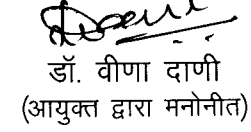 डॉ. वीणा दाणी
(आयुक्त द्वारा मनोनीत)